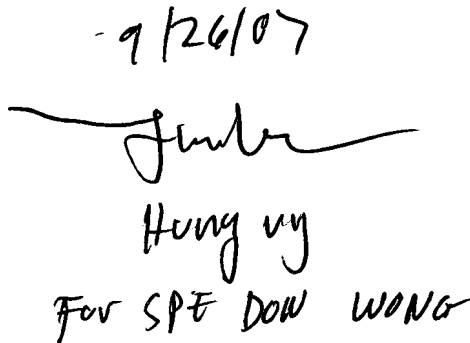 9/26/07
Hung vy
For SPE DON WONG